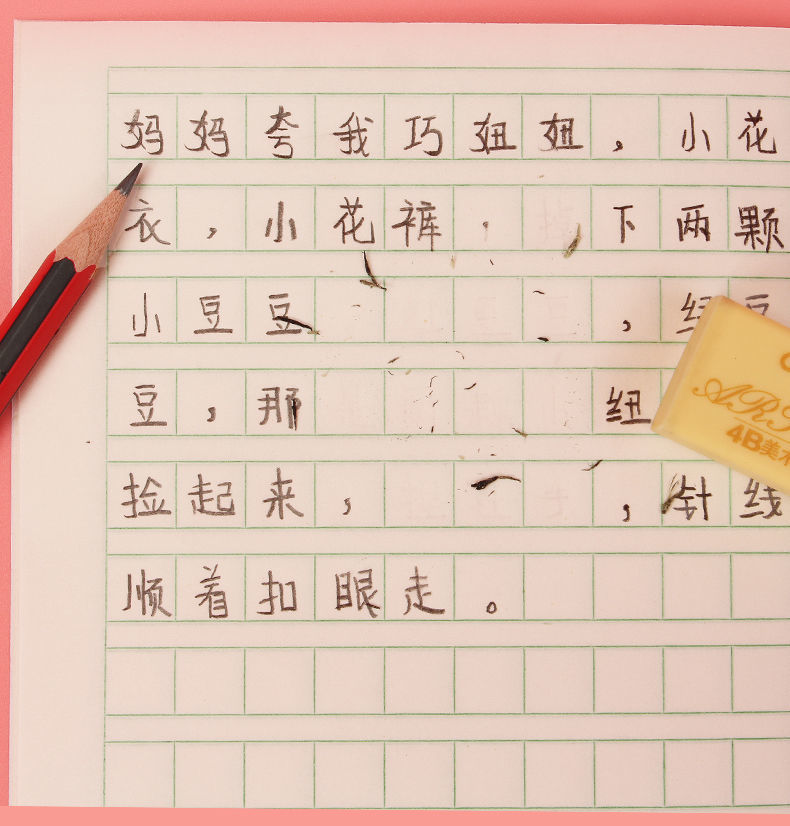 妈妈夸我巧妞妞，小花
衣，小花裤 下两颗
小豆豆 ，纽豆
豆，那 纽
捡起来， ，针线
顺着扣眼走。
4B美术